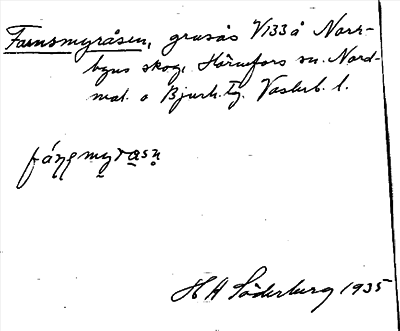 Farnsmyråsen, grusås V133å Norr-
byns skog, Hörnefors sn. Nord-
mal. o Bjurh. tg. Västerb. l.
H A Söderberg 1935